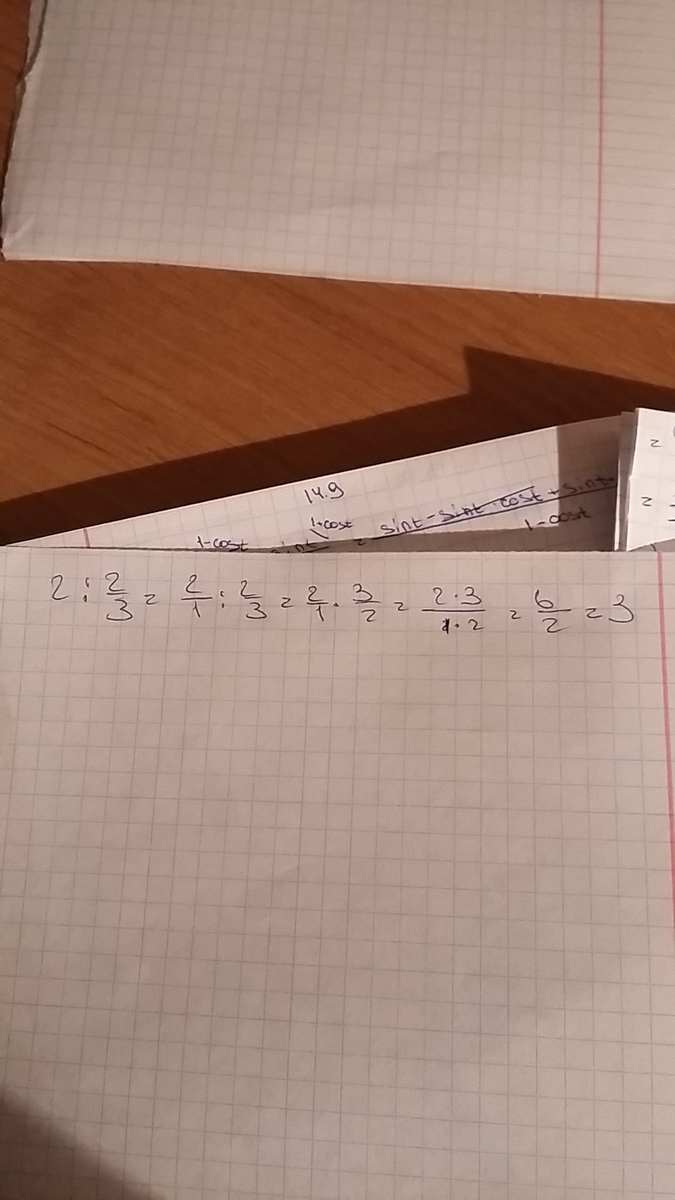 14.9
1+cost
1-cost sint = sint - sint · cost + sint
1-cost
=
=
2 : 2/3 = 2/1 : 2/3 = 2/1 · 3/2 = 2·3/1·2 = 6/2 = 3